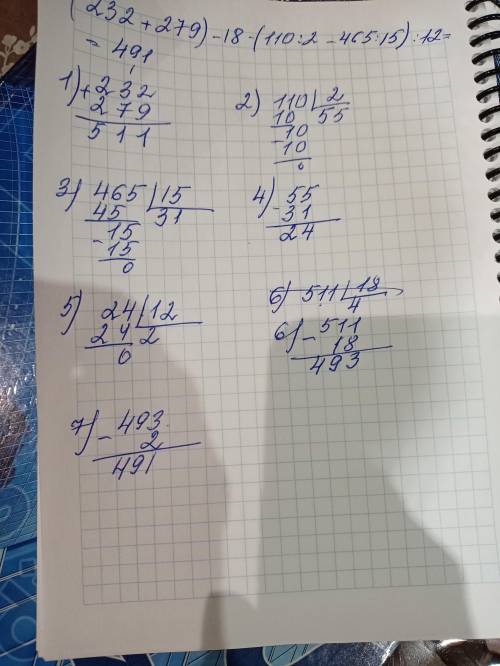 (232 + 279) - 18 - (110:2 - 465:15) : 12 =
= 491
1) + 232
279
511
2) 110 | 2
10 55
- 10
10
0
3) 465 | 15
45 31
- 15
15
0
4) - 55
31
24
5) 24 | 12
24 2
0
6) 511 | 18
4
6) - 511
18
493
7) - 493
2
491